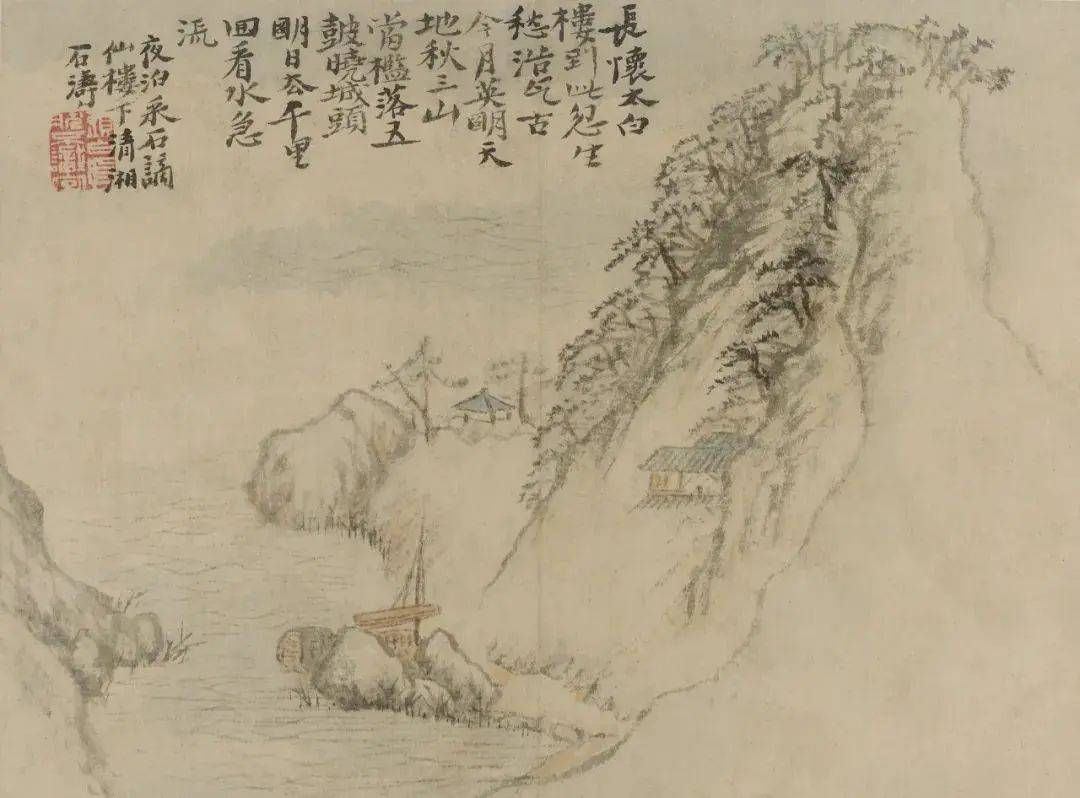 長懷太白
樓到此忽生
愁浩气古
今月英朙天
地秋三山
當檻落五
鼓曉城頭
朙日去千里
囬看水急
流
夜泊采石謫
仙樓下清湘
石濤